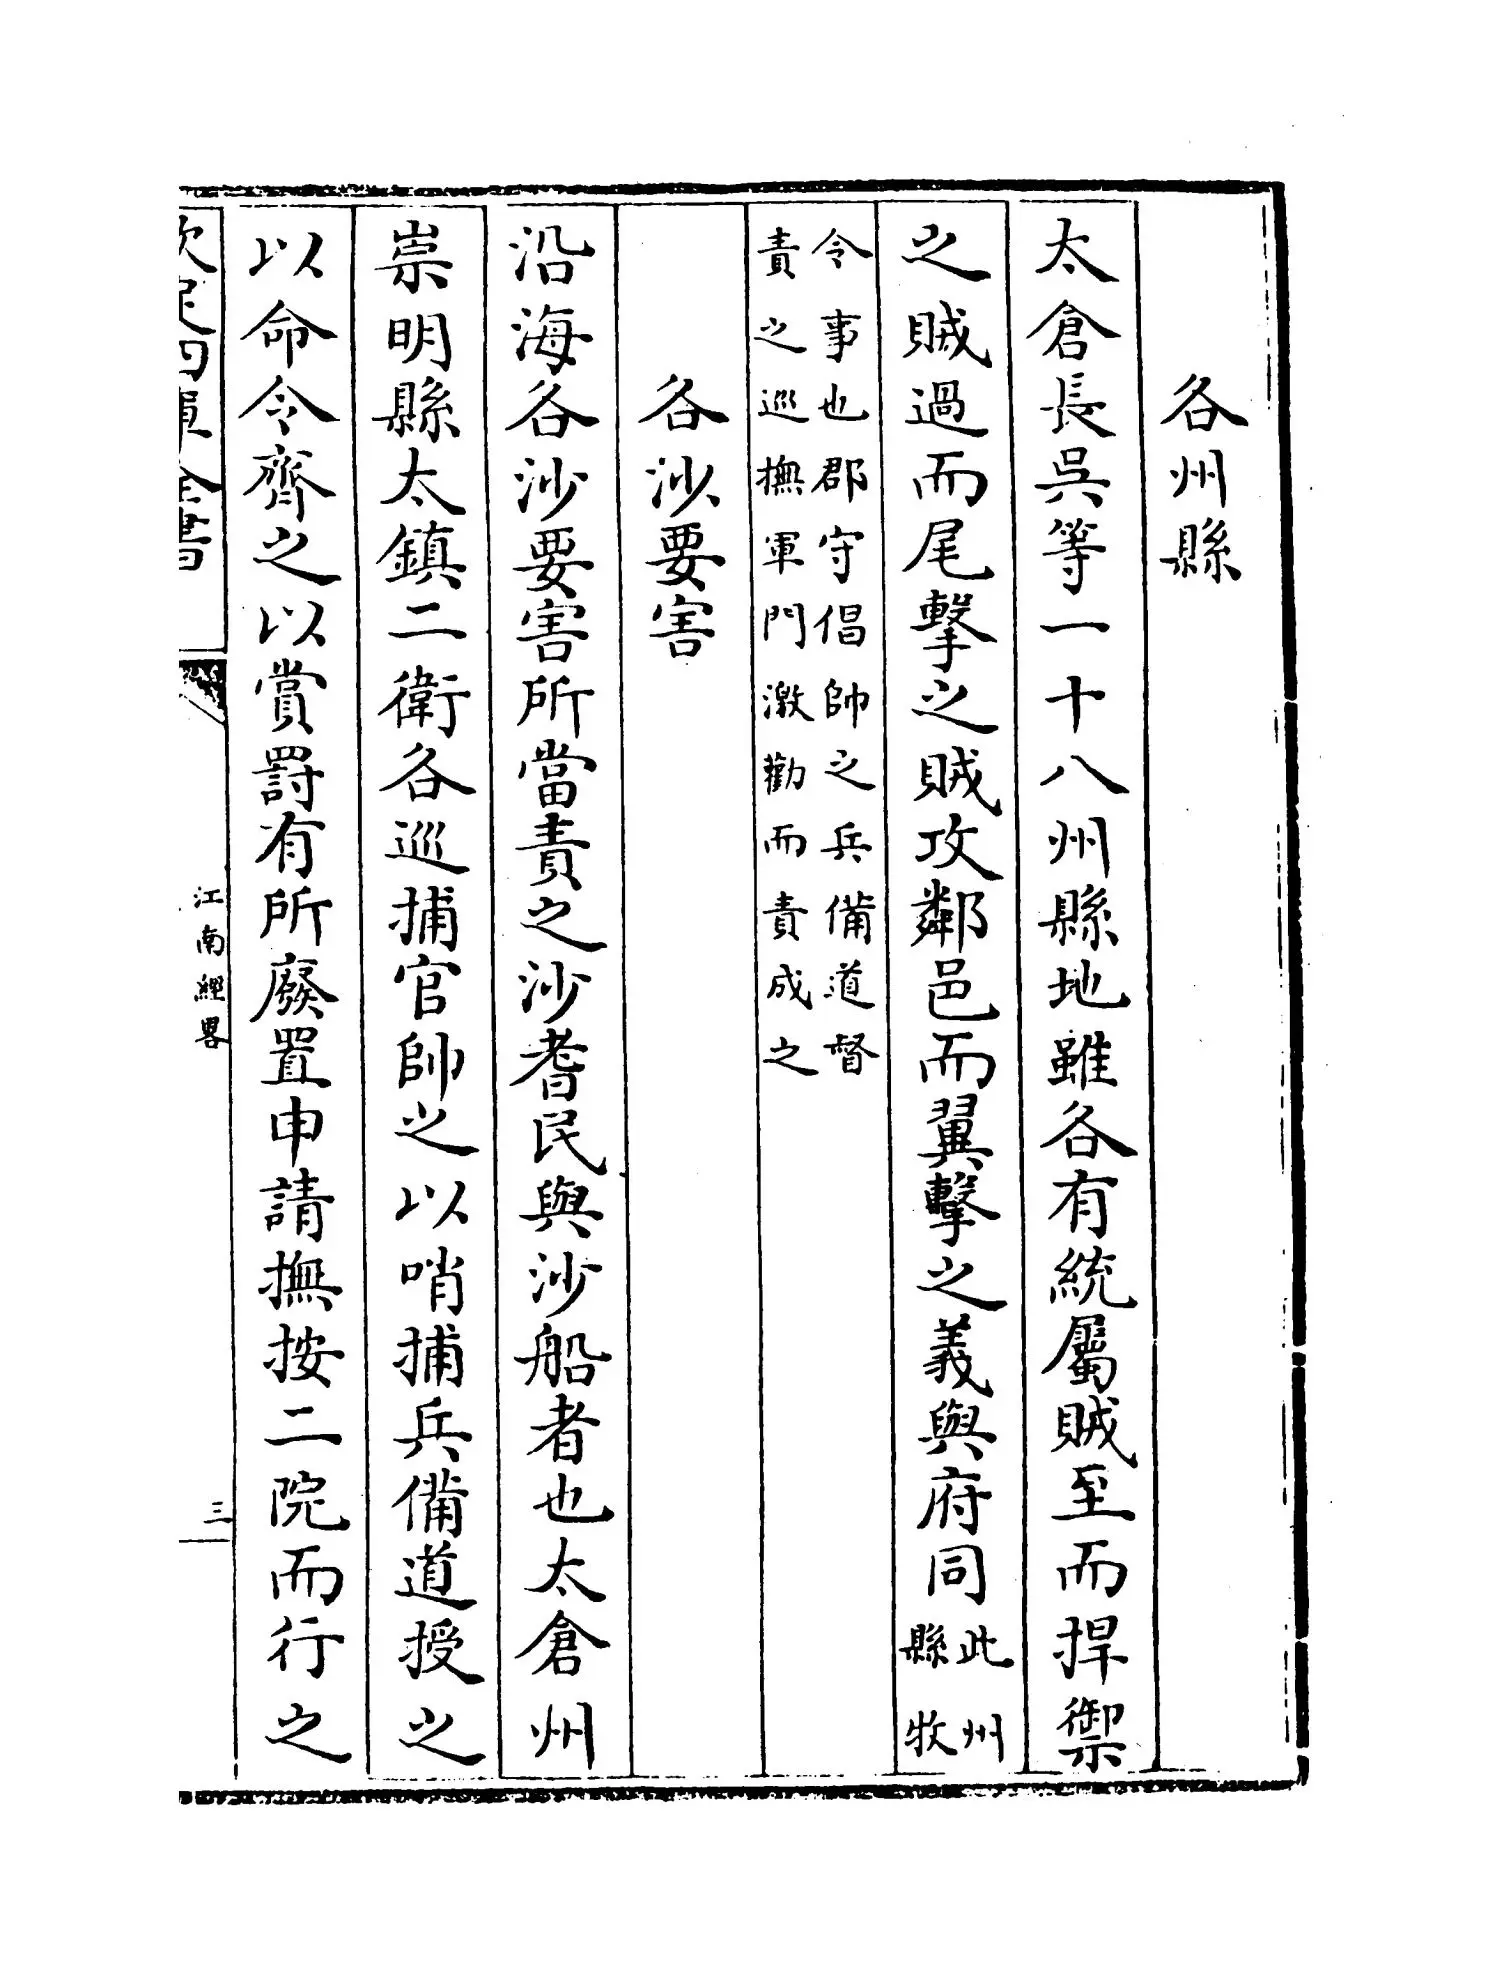 各州縣
太倉長吳等一十八州縣地雖各有統屬賊至而捍禦
之賊過而尾擊之賊攻鄰邑而翼擊之義與府同此州縣牧
令事也郡守倡帥之兵備道督
責之巡撫軍門激勸而責成之
各沙要害
沿海各沙要害所當責之沙耆民與沙船者也太倉州
崇明縣太鎮二衛各巡捕官帥之以哨捕兵備道授之
以命令齊之以賞罰有所廢置申請撫按二院而行之
欽定四庫全書
江南經畧
三